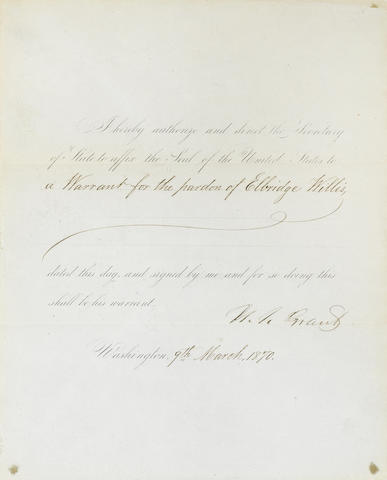 I hereby authorize and direct the Secretary
of State to affix the Seal of the United States to
a Warrant for the pardon of Elbridge Willis,
dated this day, and signed by me and for so doing this
shall be his warrant.
U. S. Grant
Washington, 9th March, 1870.